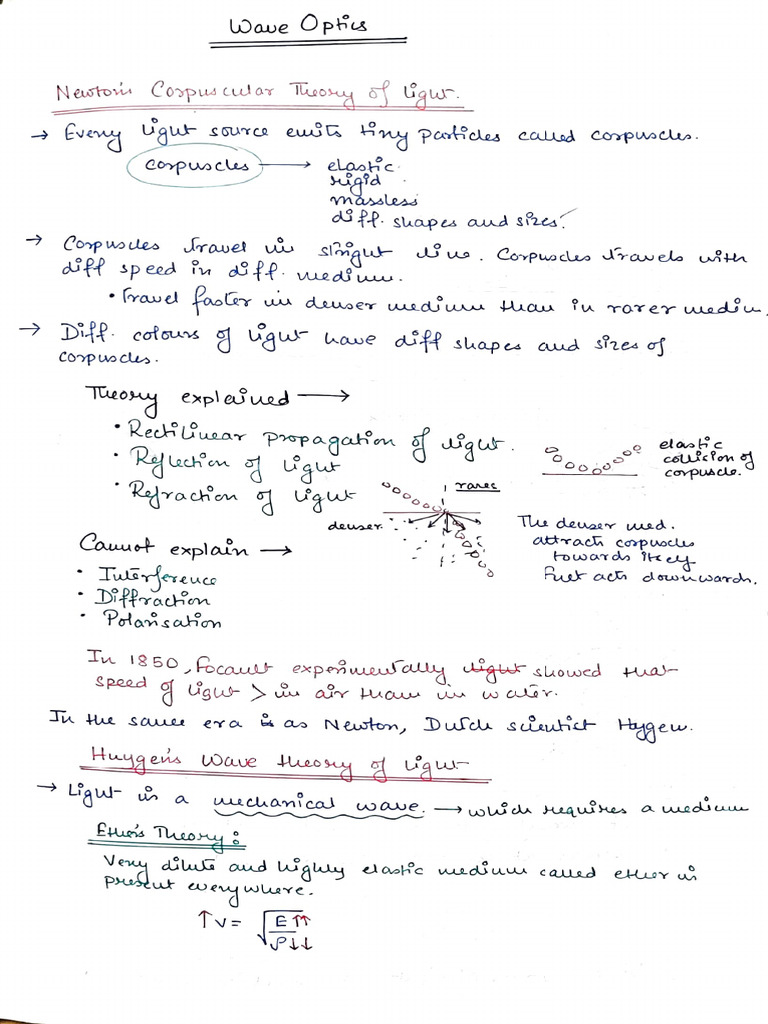 Wave Optics
Newton's Corpuscular Theory of light.
→ Every light source emits tiny particles called corpuscles.
corpuscles → elastic.
rigid
massless
diff. shapes and sizes.
→ Corpuscles travel in stright line. Corpuscles travels with
diff speed in diff. medium.
• Travel faster in denser medium than in rarer medium.
→ Diff. colours of light have diff shapes and sizes of
corpuscles.
Theory explained →
• Rectilinear propagation of light.
• Reflection of light
• Refraction of light
elastic
collision of
corpuscle.
rarer
denser
The denser med.
attracts corpuscles
towards itself
Fnet acts downwards.
Cannot explain →
• Interference
• Diffraction
• Polarisation
In 1850, Focault experimentally light showed that
speed of light > in air than in water.
In the same era as Newton, Dutch scientist Hygen.
Huygen's Wave theory of light
→ Light is a mechanical wave. → which requires a medium
Ether's Theory:
Very dilute and highly elastic medium called ether is
present everywhere.
↑ v = √(E↑↑/ρ↓↓)